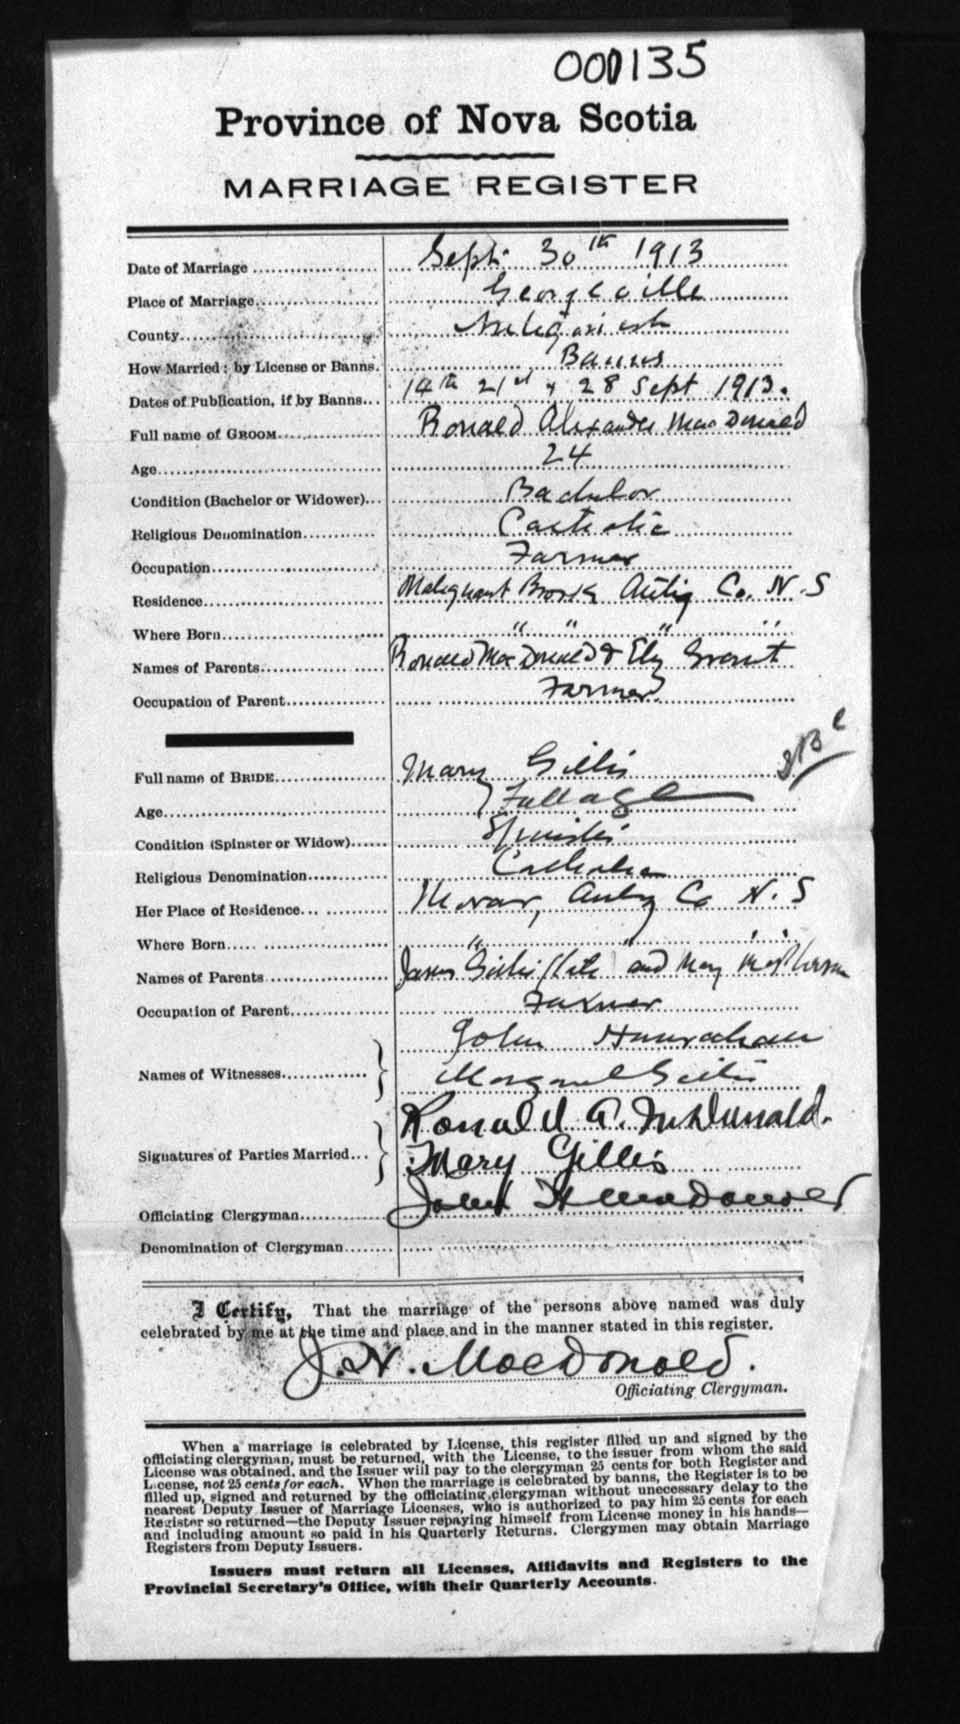 000135
Province of Nova Scotia
MARRIAGE REGISTER
Date of Marriage Sept. 30th 1913
Place of Marriage Georgeville
County Antigonish
How Married: by License or Banns. Banns
Dates of Publication, if by Banns 14th 21st & 28 Sept 1913.
Full name of GROOM Ronald Alexander MacDonald
Age 24
Condition (Bachelor or Widower) Bachelor
Religious Denomination Catholic
Occupation Farmer
Residence Malignant Brook Antig Co. N.S
Where Born " " " "
Names of Parents Ronald MacDonald & Eliz Grant
Occupation of Parent Farmer
Full name of BRIDE Mary Gillis
Age Full age
Condition (Spinster or Widow) Spinster
Religious Denomination Catholic
Her Place of Residence Morar, Antig Co N.S
Where Born " " " "
Names of Parents James Gillis and Mary McPherson
Occupation of Parent Farmer
Names of Witnesses John Hanrahan
Margaret Gillis
Signatures of Parties Married Ronald A. McDonald.
Mary Gillis
Officiating Clergyman John H MacDonald
Denomination of Clergyman
I Certify, That the marriage of the persons above named was duly
celebrated by me at the time and place and in the manner stated in this register.
J. H. MacDonald.
Officiating Clergyman.
When a marriage is celebrated by License, this register filled up and signed by the
officiating clergyman, must be returned, with the License, to the issuer from whom the said
License was obtained, and the Issuer will pay to the clergyman 25 cents for both Register and
License, not 25 cents for each. When the marriage is celebrated by banns, the Register is to be
filled up, signed and returned by the officiating clergyman without unnecessary delay to the
nearest Deputy Issuer of Marriage Licenses, who is authorized to pay him 25 cents for each
Register so returned—the Deputy Issuer repaying himself from License money in his hands—
and including amount so paid in his Quarterly Returns. Clergymen may obtain Marriage
Registers from Deputy Issuers.
Issuers must return all Licenses, Affidavits and Registers to the
Provincial Secretary's Office, with their Quarterly Accounts.